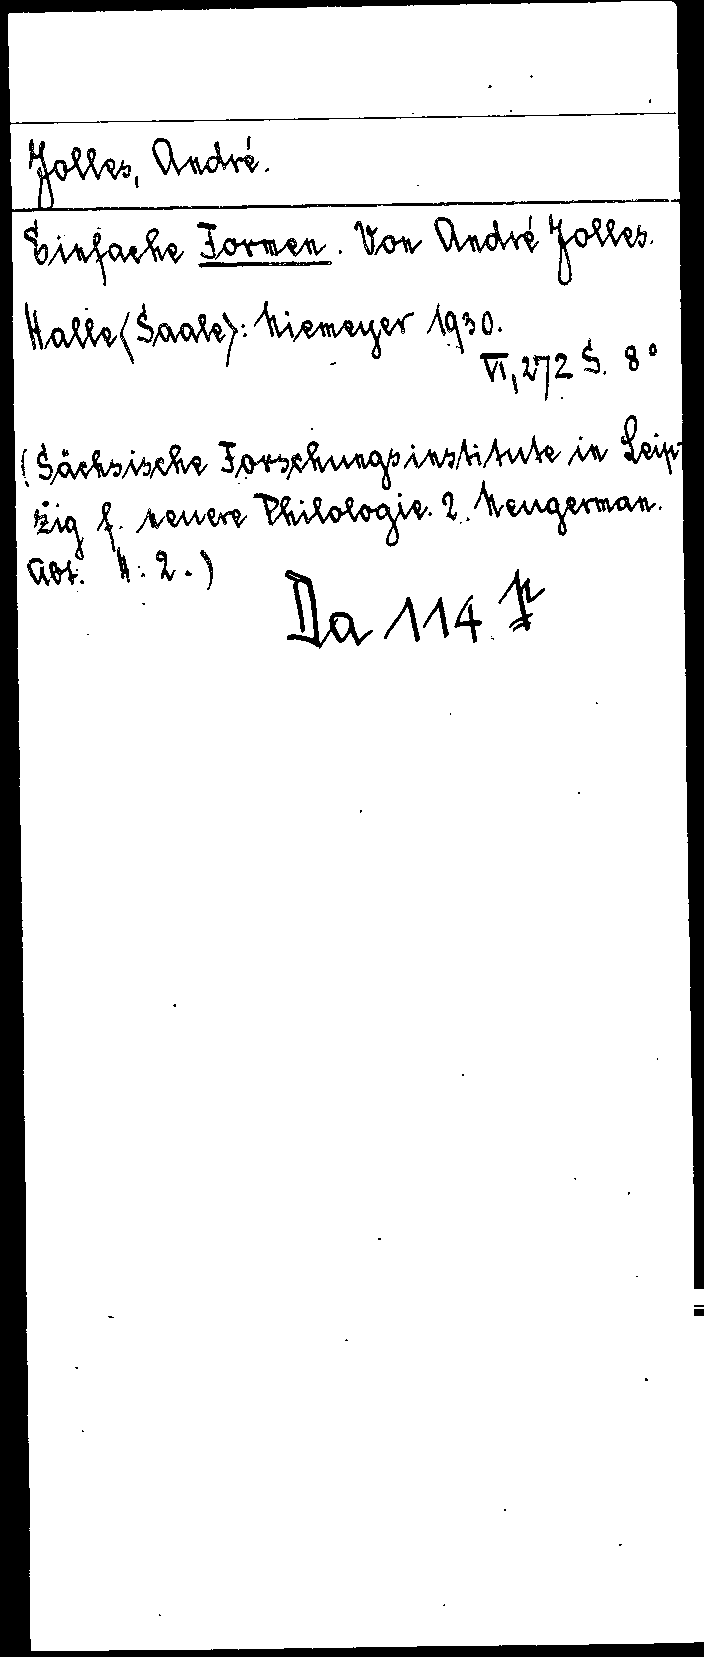 Jolles, André.
Einfache Formen. Von André Jolles.
Halle (Saale): Niemeyer 1930.
VI, 272 S. 8°
(Sächsische Forschungsinstitute in Leip-
zig f. neuere Philologie. 2. Neugerman.
Abt. H. 2.)
Da 114